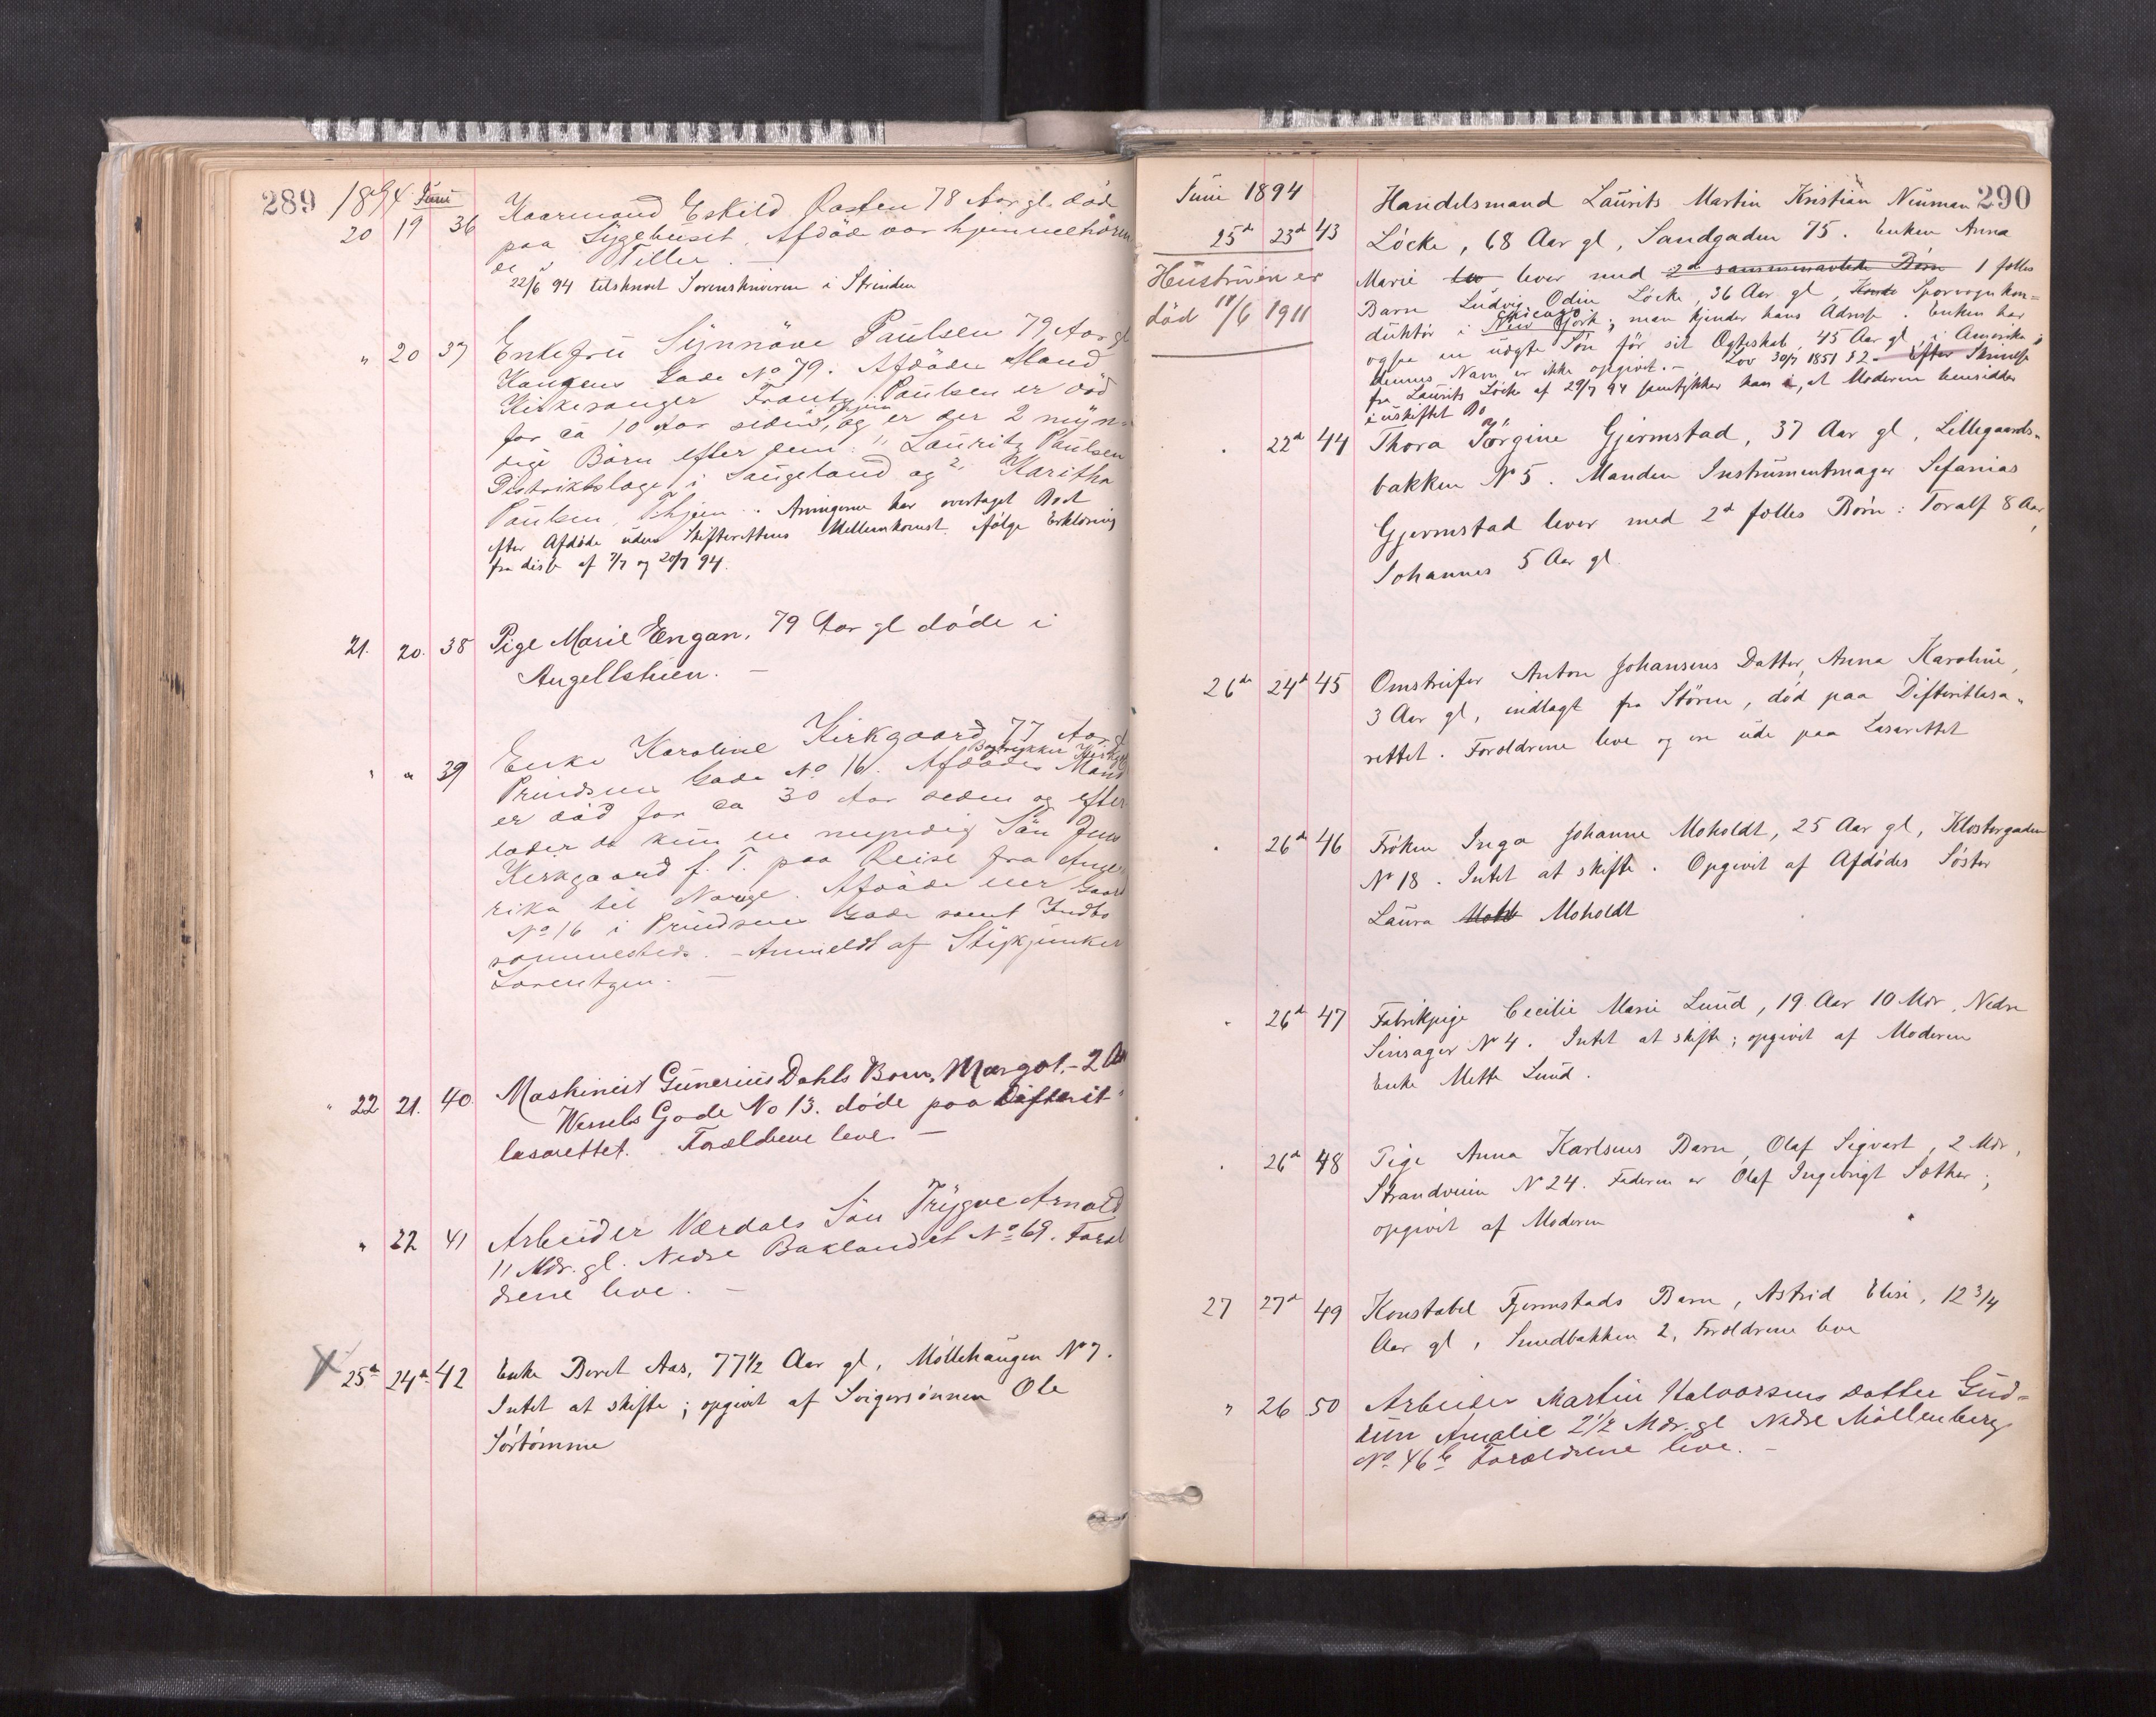 289
1894 Juni
20 19 36 Kaarmand Eskild Rasten 78 Aar gl. död
paa Sygehuset. Afdöde var hjemmehören
de i Tiller. —
22/6 94 tilskrevet Sorenskriveren i Strinden
" 20 37 Enkefru Synnöve Paulsen 79 Aar gl
Kongens Gade No 79. Afdödes Mand
Kirkesanger Frantz Paulsen er död
for ca 10 Aar siden, og er der 2 myn-
dige Börn efter dem: 1, Lauritz Paulsen
Distriktslæge i Saugeland og 2, Haritha
Paulsen, Thjem. Arvingerne har overtaget Boet
efter Afdöde uden Skifterettens Mellemkomst ifölge Erklæring
fra disse af 7/7 og 20/7 94.
21. 20. 38 Pige Marie Engan, 79 Aar gl döde i
Angellstuen. —
" " 39 Enke Karoline Kirkgaard 77 Aar gl
Prindsens Gade No 16. Afdödes Mand Bogtrykker Kirkg
er död for ca 30 Aar siden og efter
lader de kun en myndig Sön Jens
Kirkgaard f. T. paa Reise fra Ame
rika til Norge. Afdöde eier Gaard
No 16 i Prindsens Gade samt Indbo
sammesteds. – Anmeldt af Stykjunker
Lorentzen. —
" 22 21. 40. Maskinist Gunerius Dahls Barn, Margot, – 2 Aar
Wessels Gade No 13. döde paa Difterit
lasarettet. Forældrene leve. —
" 22 41 Arbeider Værdals Sön Trygve Arnold
11 Mdr. gl. Nedre Baklandet No 69. Foræl
drene leve. —
X 25de 24de 42 Enke Beret Aas, 77 1/2 Aar gl, Möllehaugen No 7.
Intet at skifte; opgivet af Svigersönnen Ole
Sörtömme
Juni 1894 290
Handelsmand Laurits Martin Kristian Neuman
25de 23de 43 Löcke, 68 Aar gl, Sandgaden 75. Enken Anna
Husturuen er
död 11/6 1911
Marie lev lever med 2de sammenavlede Börn 1 fælles
Barn Ludvig Odin Löcke, 36 Aar gl, Kondu Sporvognskon-
duktör i New York Chicago; man kjender hans Adresse. Enken har
ogsaa en uægte Sön för sit Ægteskab, 45 Aar gl, i Amerika;
dennes Navn er ikke opgivet. – Lov 30/7 1851 § 2 – Efter Skrivelse
fra Laurits Löcke af 29/7 94 samtykker han i, at Moderen hensidder
i uskiftet Bo
" 22de 44 Thora Jörgine Gjermstad, 37 Aar gl, Lillegaards-
bakken No 5. Manden Instrumentmager Sefanias
Gjermstad lever med 2de fælles Börn: Toralf 8 Aar,
Johannes 5 Aar gl
26de 24de 45 Omstreifer Anton Johansens Datter, Anna Karoline,
3 Aar gl, indlagt fra Stören, död paa Difteritlasa-
rettet. Forældrene leve og ere ude paa Lasarettet
" 26de 46 Fröken Inga Johanne Moholdt, 25 Aar gl, Klostergaden
No 18. Intet at skifte. Opgivet af Afdödes Söster
Laura Mohb Moholdt
" 26de 47 Fabrikpige Cecilie Marie Lund, 19 Aar 10 Mdr, Nedre
Sinsager No 4. Intet at skifte; opgivet af Moderen
Enke Mette Lund.
" 26de 48 Pige Anna Karlsens Barn, Olaf Sigvart, 2 Mdr,
Strandveien No 24. Faderen er Olaf Ingebrigt Sæther;
opgivet af Moderen
27 27de 49 Konstabel Fjermstads Barn, Astrid Elise, 12 3/4
Aar gl, Smedbakken 2, Forældrene leve
" 26 50 Arbeider Martin Halvorsens Datter Gud-
run Amalie 2 1/2 Mdr. gl Nedre Möllenberg
No. 46b Forældrene leve. –